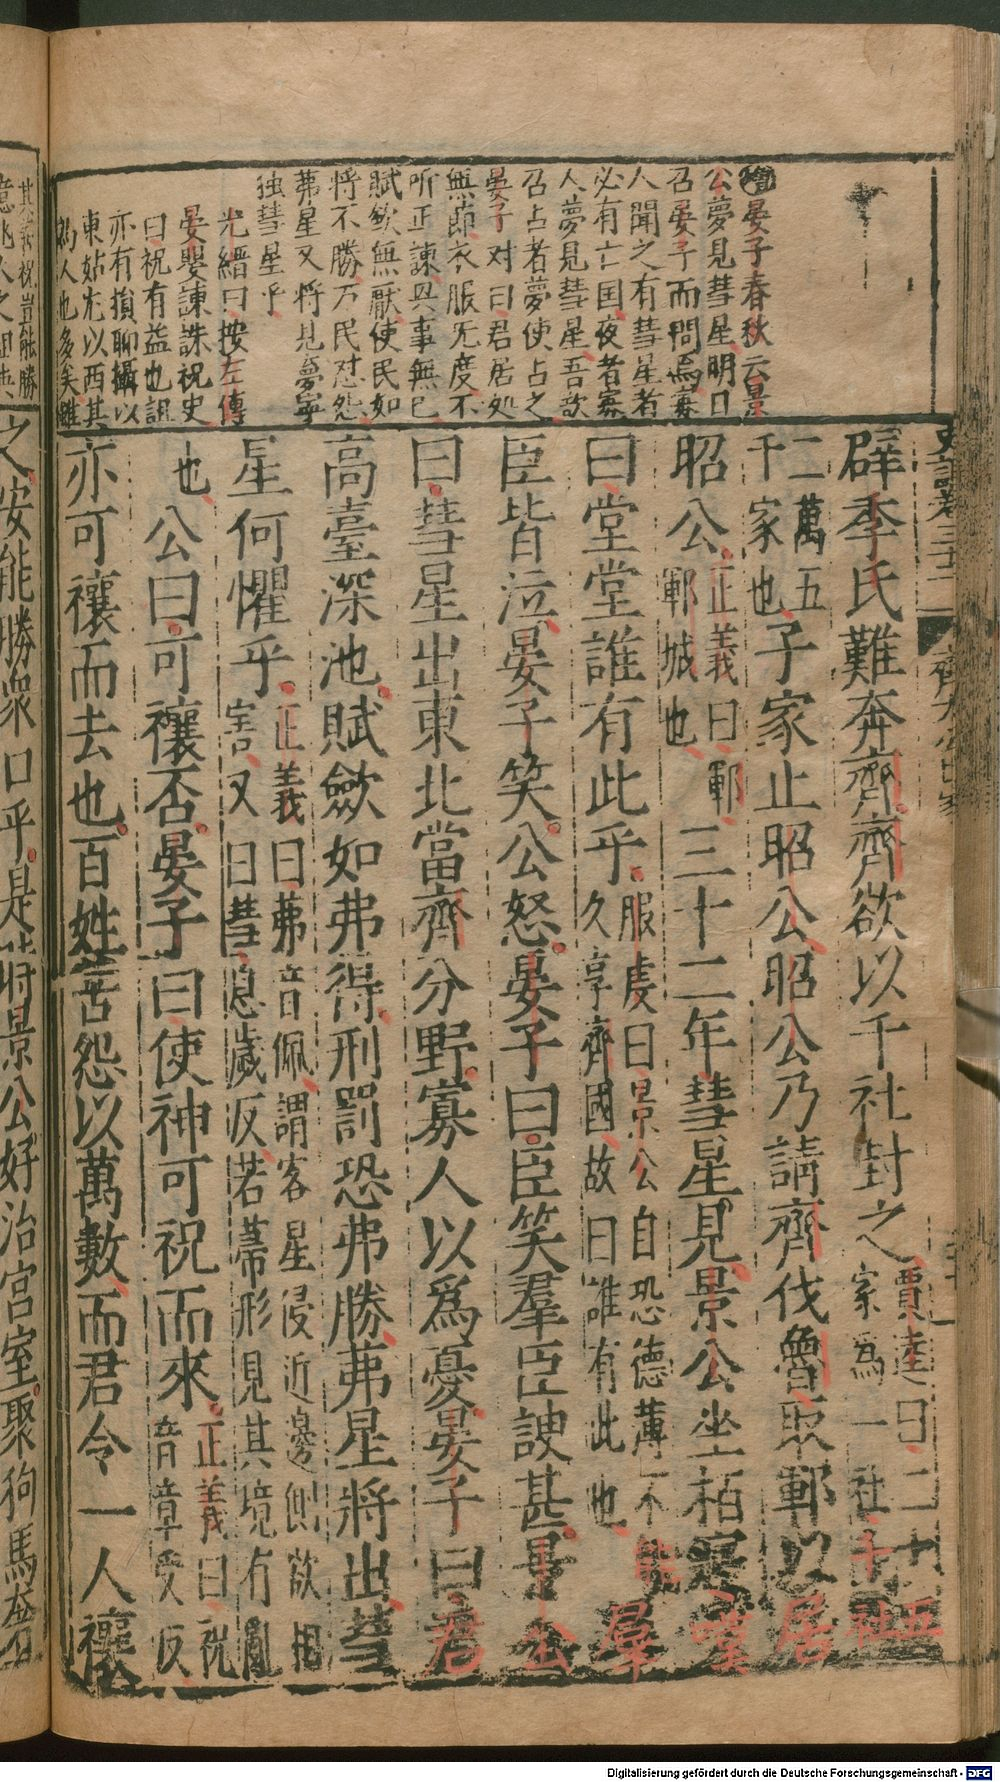 晏子春秋云景
公夢見彗星明日
召晏子而問焉寡
人聞之有彗星者
必有亡国夜者寡
人夢見彗星吾欲
召占者夢使占之
晏子对曰君居处
無節衣服无度不
听正諫興事無已
賦歛無厭使民如
将不勝万民怼怨
茀星又将見夢寧
独彗星乎
光縉曰按左傳
晏嬰諫誅祝史
曰祝有益也詛
亦有損聊攝以
東姑尤以西其
為人也多矣雖
史記卷三十二 齊太公世家
辟季氏難奔齊齊欲以千社封之賈逵曰二十五
家為一社千社
二萬五
千家也子家止昭公昭公乃請齊伐魯取鄆以居
昭公正義曰鄆
鄆城也三十二年彗星見景公坐柏寢嘆
曰堂堂誰有此乎服虔曰景公自恐德薄不能
久享齊國故曰誰有此也羣
臣皆泣晏子笑公怒晏子曰臣笑羣臣諛甚景公
曰彗星出東北當齊分野寡人以爲憂晏子曰君
高臺深池賦歛如弗得刑罰恐弗勝茀星將出彗
星何懼乎正義曰茀音佩謂客星侵近邊側欲相
害又曰彗息歲反若帚形見其境有亂
也公曰可禳否晏子曰使神可祝而來正義曰祝
音章受反
亦可禳而去也百姓苦怨以萬數而君令一人禳
其善祝豈能勝
億兆人之詛
之安能勝衆口乎是時景公好治宮室聚狗馬奢
Digitalisierung gefördert durch die Deutsche Forschungsgemeinschaft - DFG